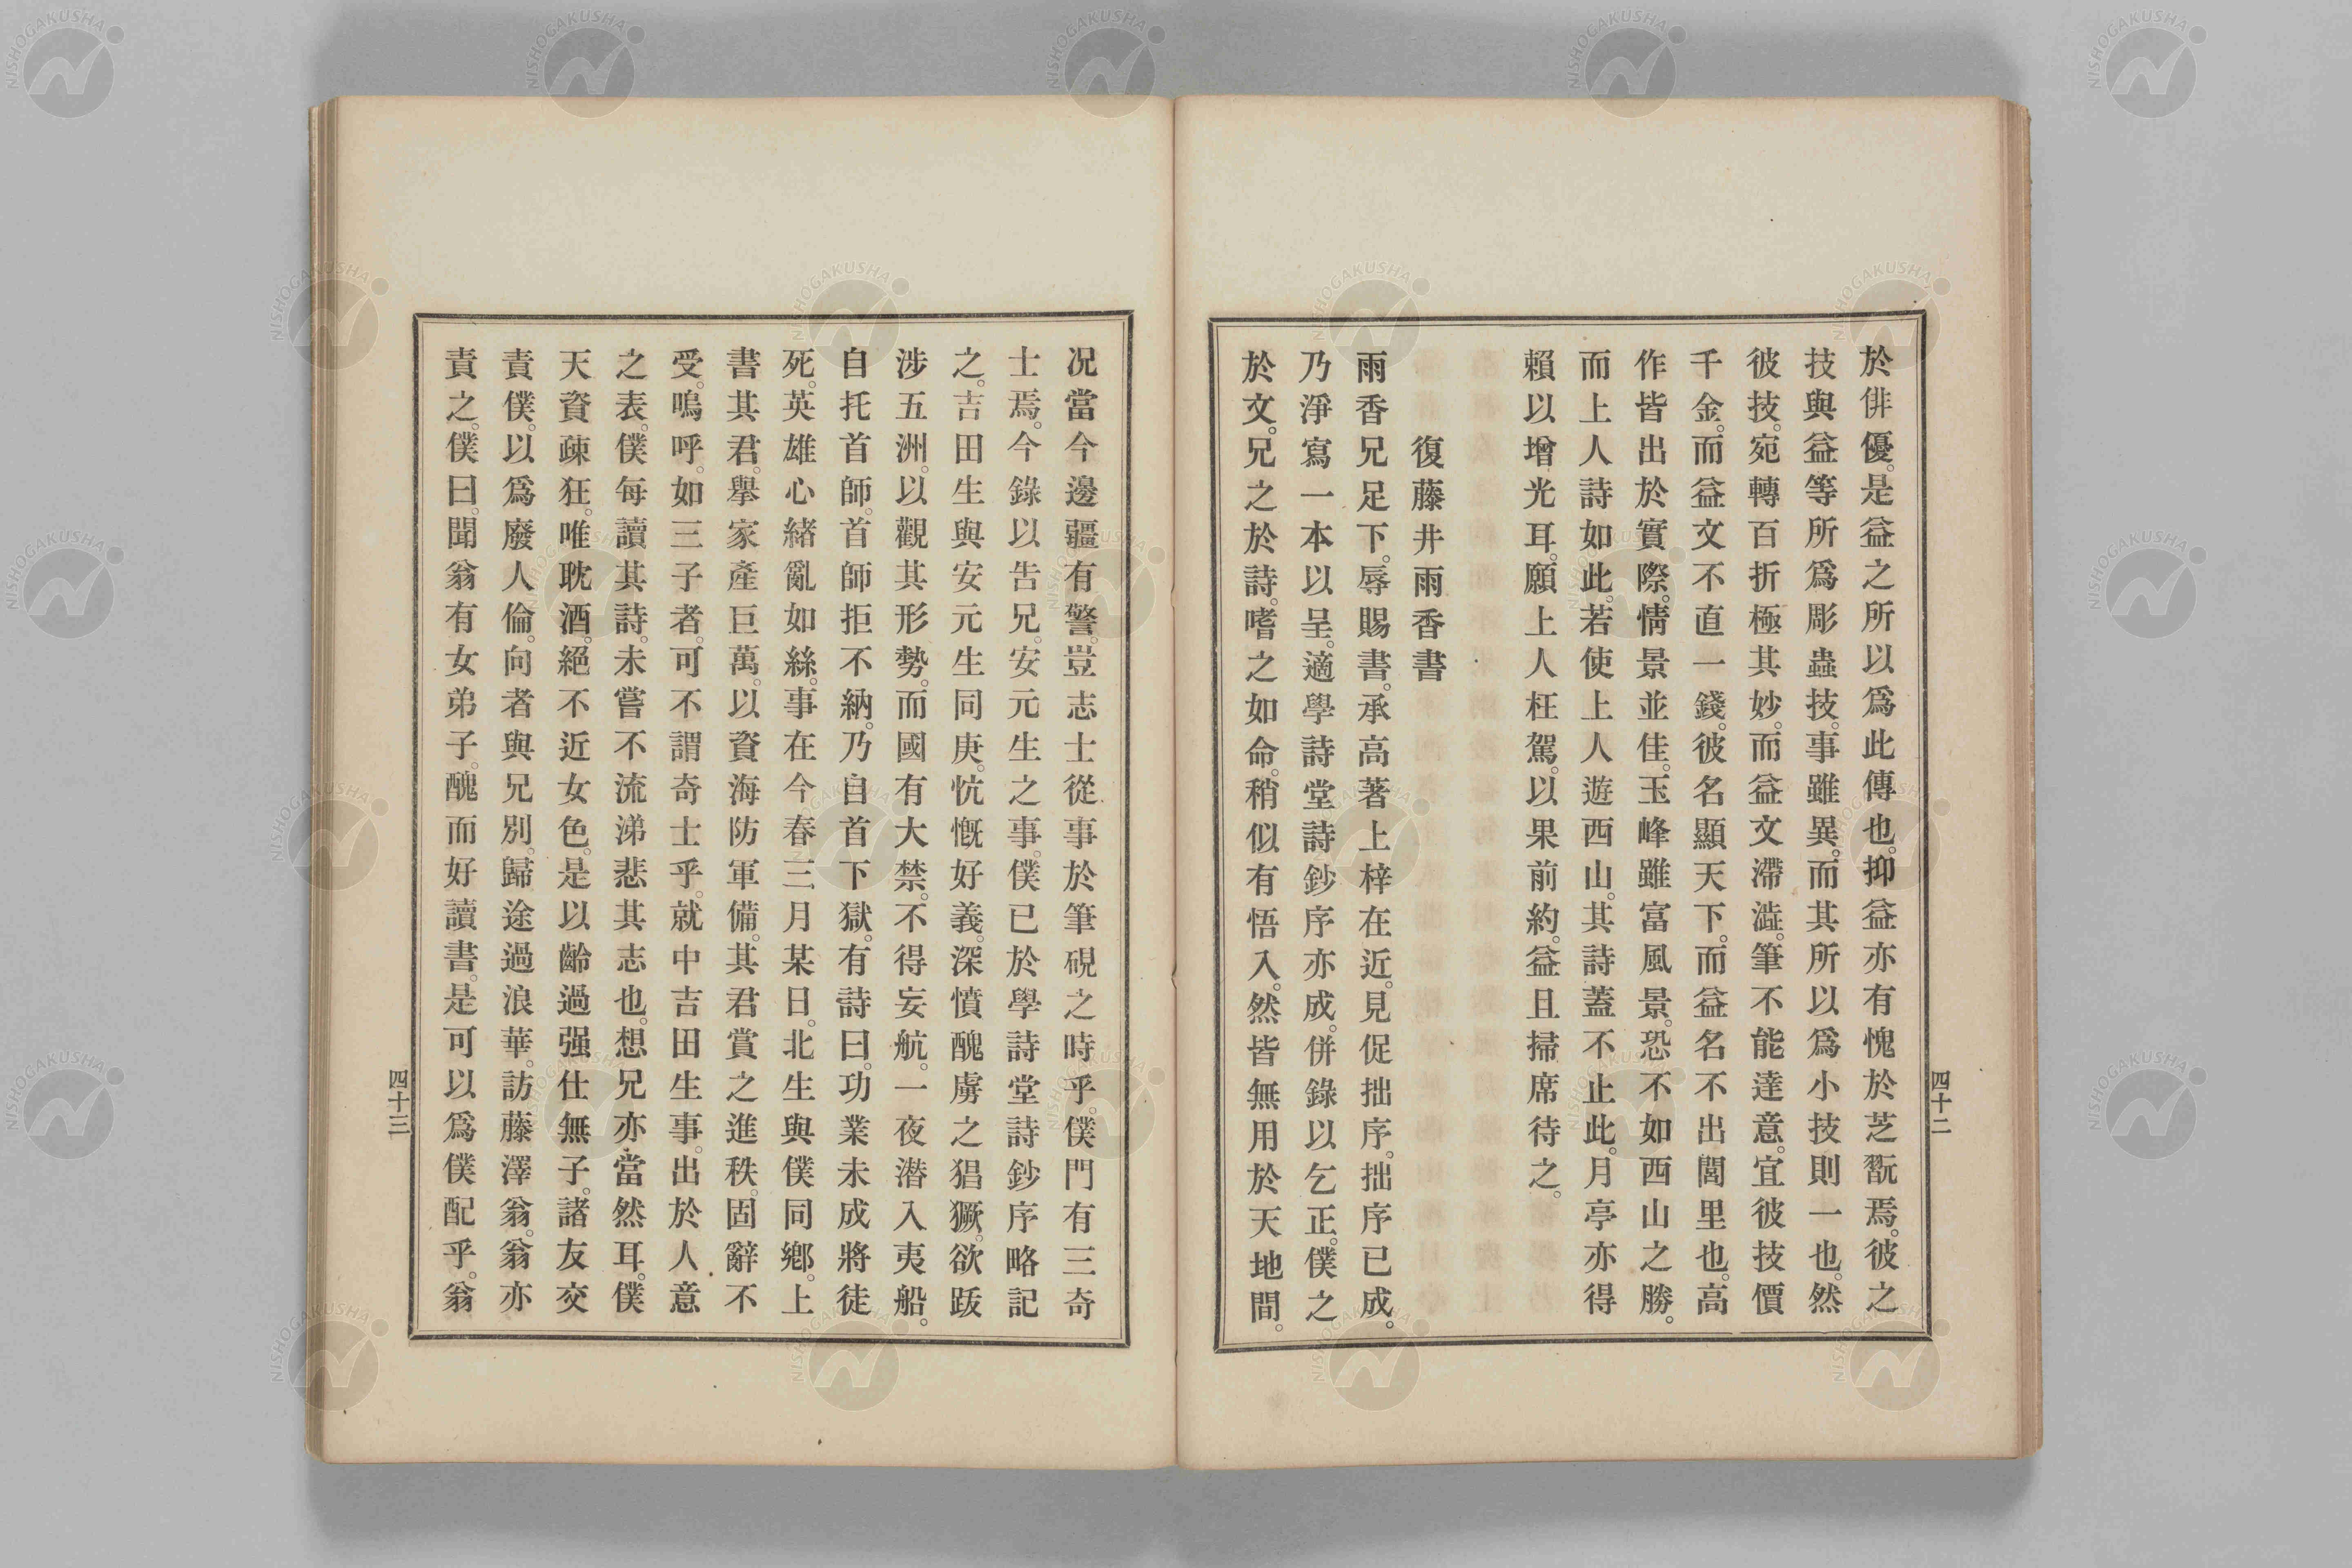 於俳優。是益之所以爲此傳也。抑益亦有愧於芝翫焉。彼之
技與益等所爲彫蟲技。事雖異。而其所以爲小技則一也。然
彼技。宛轉百折極其妙。而益文滯澁。筆不能達意。宜彼技價
千金。而益文不直一錢。彼名顯天下。而益名不出閭里也。高
作皆出於實際。情景並佳。玉峰雖富風景。恐不如西山之勝。
而上人詩如此。若使上人遊西山。其詩蓋不止此。月亭亦得
賴以增光耳。願上人枉駕。以果前約。益且掃席待之。
復藤井雨香書
雨香兄足下。辱賜書。承高著上梓在近。見促拙序。拙序已成。
乃淨寫一本以呈。適學詩堂詩鈔序亦成。併錄以乞正。僕之
於文。兄之於詩。嗜之如命。稍似有悟入。然皆無用於天地間。
四十二
况當今邊疆有警。豈志士從事於筆硯之時乎。僕門有三奇
士焉。今錄以告兄。安元生之事。僕已於學詩堂詩鈔序略記
之。吉田生與安元生同庚。忼慨好義。深憤醜虜之猖獗。欲跋
涉五洲。以觀其形勢。而國有大禁。不得妄航。一夜潜入夷船。
自托首師。首師拒不納。乃自首下獄。有詩曰。功業未成將徒
死。英雄心緒亂如絲。事在今春三月某日。北生與僕同鄕。上
書其君。擧家產巨萬。以資海防軍備。其君賞之進秩。固辭不
受。嗚呼。如三子者。可不謂奇士乎。就中吉田生事。出於人意
之表。僕每讀其詩。未嘗不流涕悲其志也。想兄亦當然耳。僕
天資疎狂。唯耽酒。絕不近女色。是以齡過强仕無子。諸友交
責僕。以爲廢人倫。向者與兄別。歸途過浪華。訪藤澤翁。翁亦
責之。僕曰。聞翁有女弟子。醜而好讀書。是可以爲僕配乎。翁
四十三
NISHOGAKUSHA